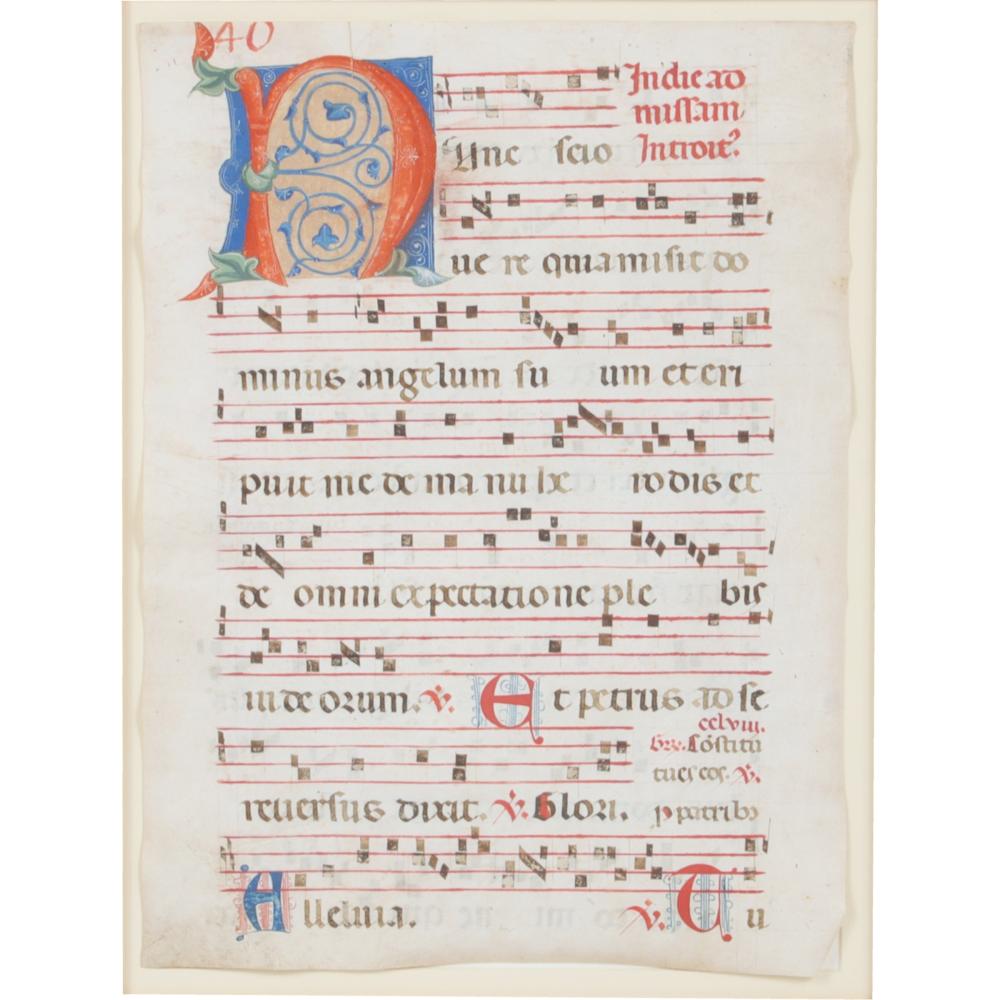 40
In die ad
missam
Introit?
Nunc scio
ue re quia misit do
minus angelum su um et eri
puit me de ma nu he ro dis et
de omni expectatione ple bis
iudeorum. v. Et petrus ad se
cclviii.
Gr. Cōstitu
reuersus dixit. v. Glori. tues eos. v.
p patribȝ
Alleluia. v. Tu